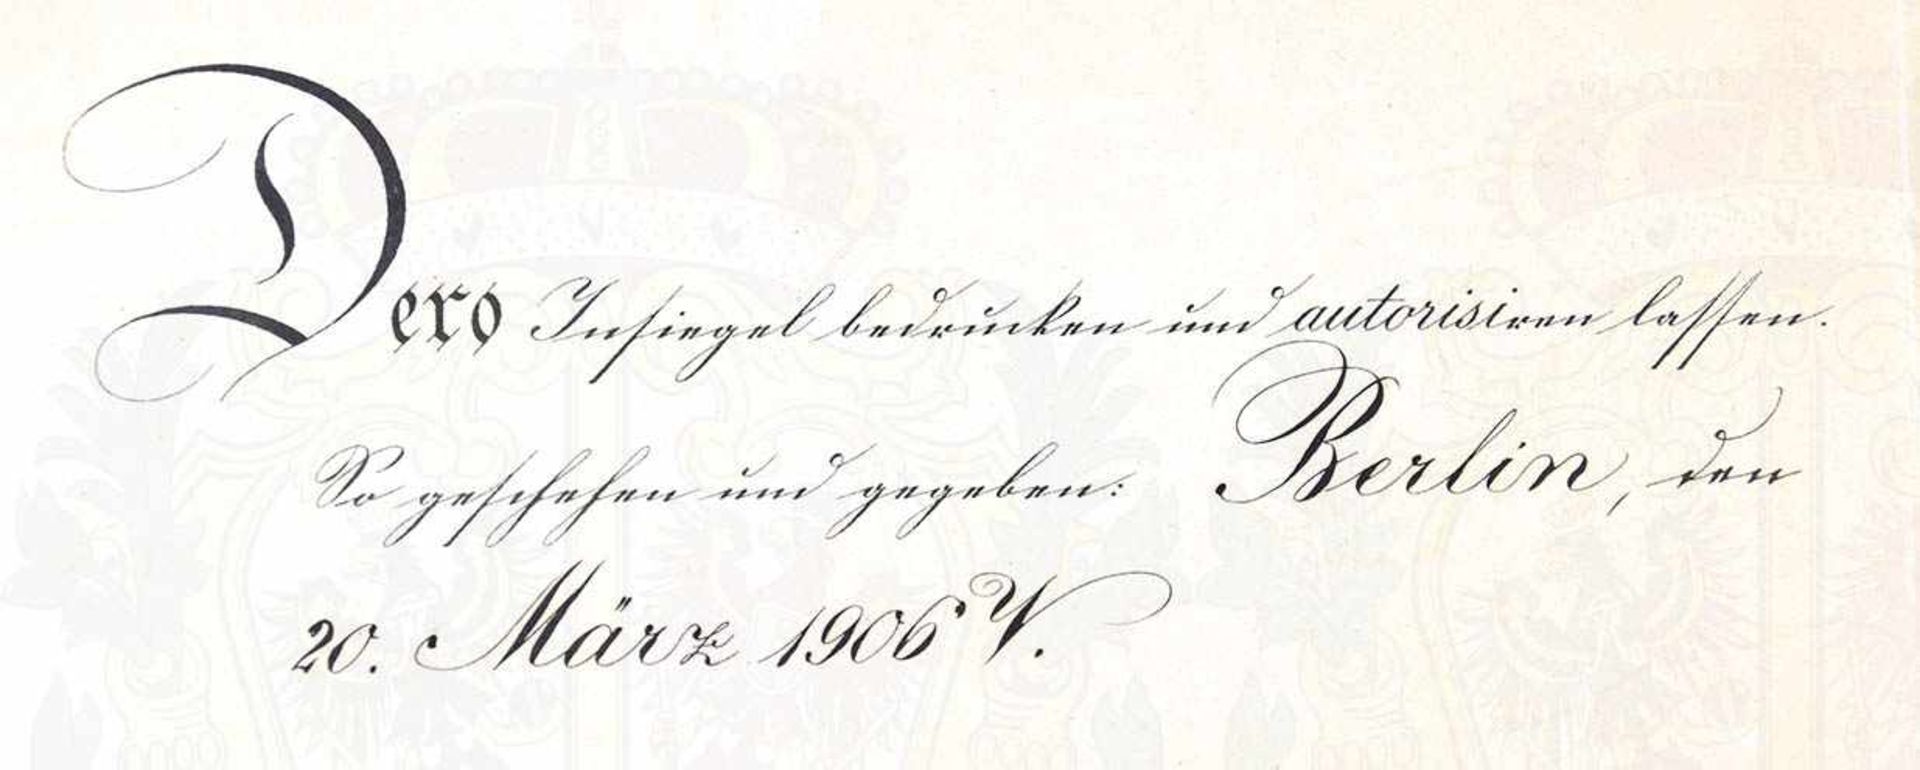 Dero Insiegel bedrucken und autorisiren lassen.
So geschehen und gegeben: Berlin, den
20. März 1906